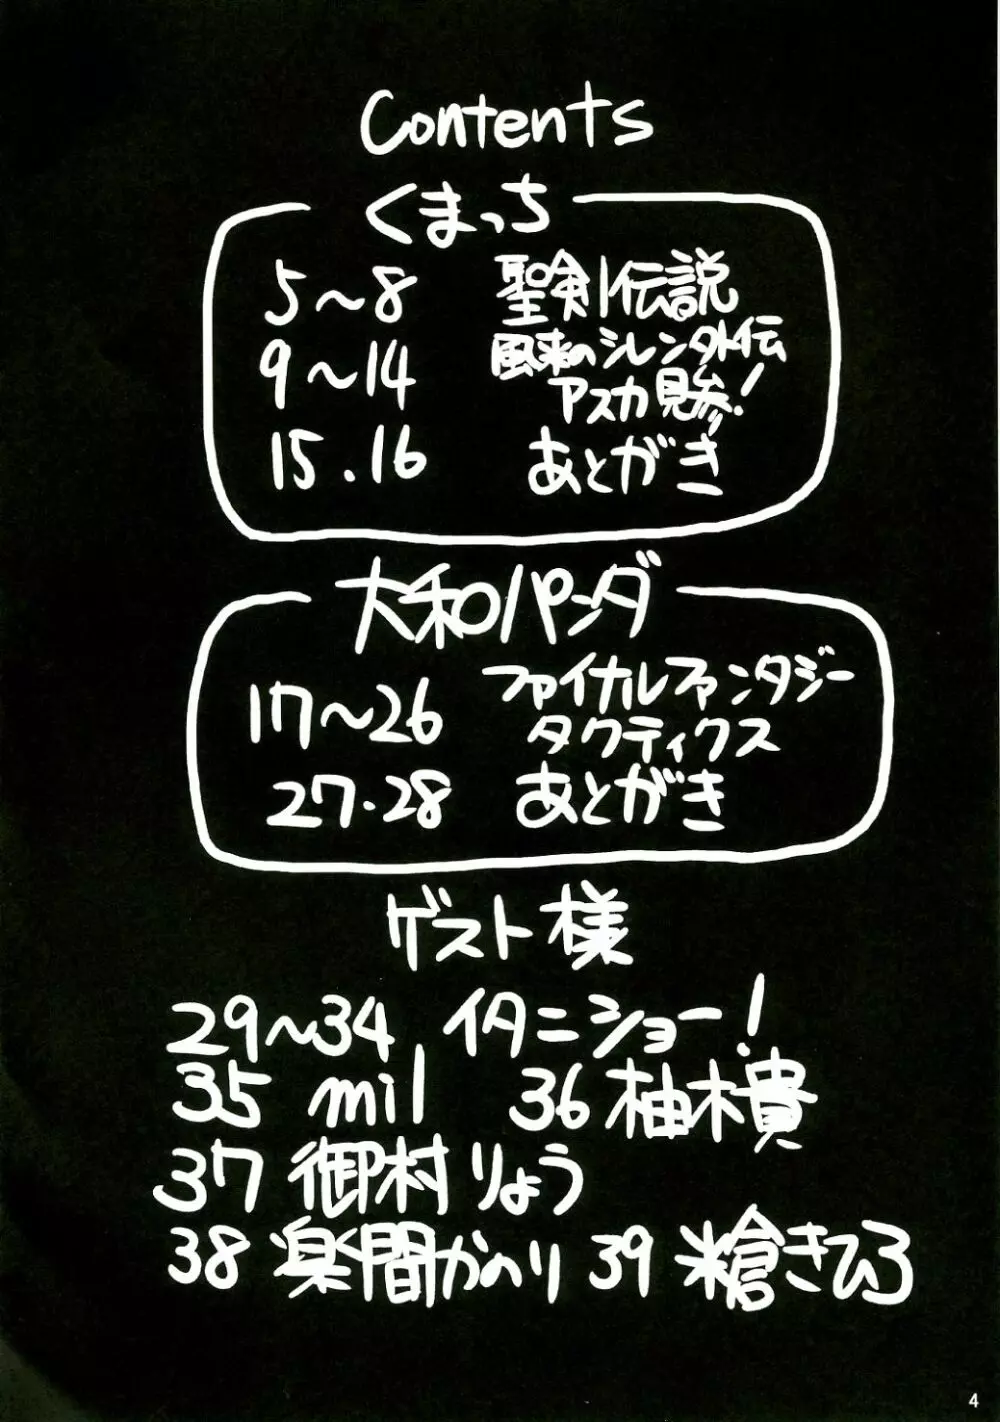 Contents
くまっち
5~8 聖剣伝説
9~14 風来のシレン外伝
アスカ見参!
15.16 あとがき
大和パンダ
17~26 ファイナルファンタジー
タクティクス
27・28 あとがき
ゲスト様
29~34 イタニショー!
35 mil 36 柚木貴
37 御村りょう
38 楽間かのり 39 米倉きひろ
4